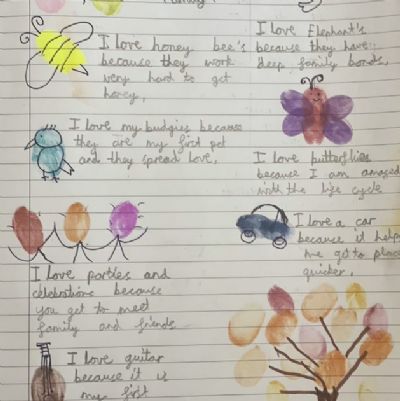 I love honey bee's
because they work
very hard to get
honey.
I love Elephant's
because they have
deep family bonds.
I love my budgies because
they are my first pet
and they spread love.
I love butterflies
because I am amazed
with the life cycle
I love a car
because it helps
me get to place
quicker.
I love parties and
celebrations because
you get to meet
family and friends
I love guitar
because it is
my first